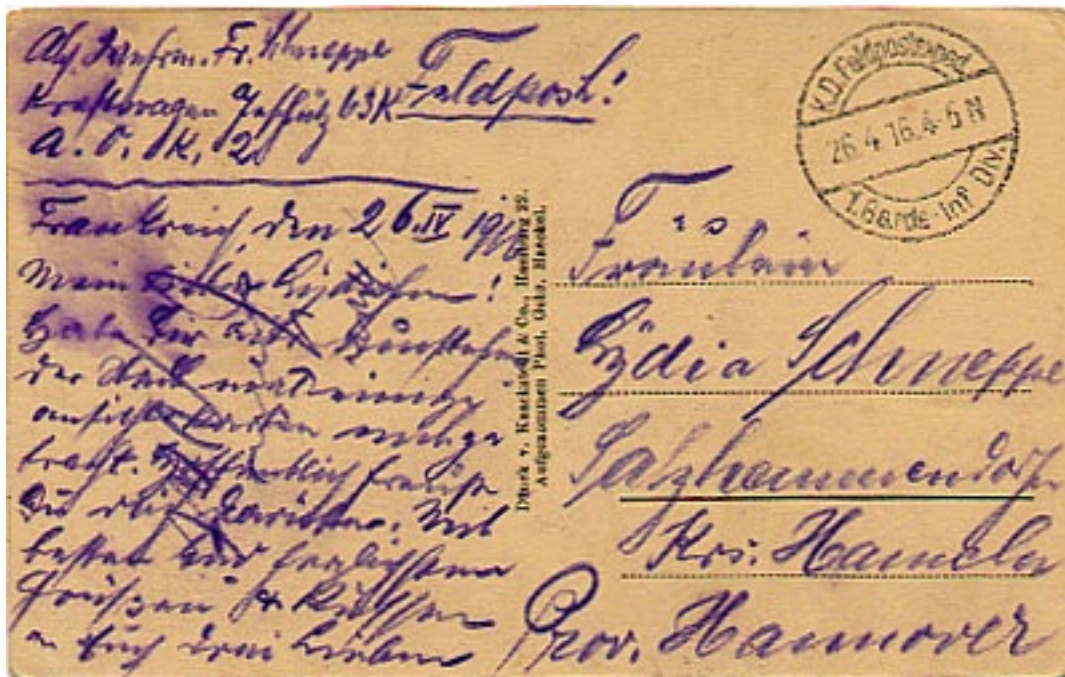 Abs. Wehrm. Fr. Schneppe
Kraftwagen 63K
A. O. K. 2
Feldpost!
K.D. Feldpostexped.
26.4.16.4-5 N
1. Garde-Inf. Div.
Frankreich, den 26.IV 1916
Mein liebes Lydichen!
Habe Dir
der Stadt
ansichtskarten mitge
bracht. Hoffentlich freust
Du dich darüber. Mit
besten und herzlichsten
Grüßen & Küssen
an Euch drei Lieben
Druck v. Knackstedt & Co., Hamburg 22.
Aufgenommen Phot. Gebr. Haeckel.
Fräulein
Lydia Schneppe
Salzhemmendorf
Krs. Hameln
Prov. Hannover